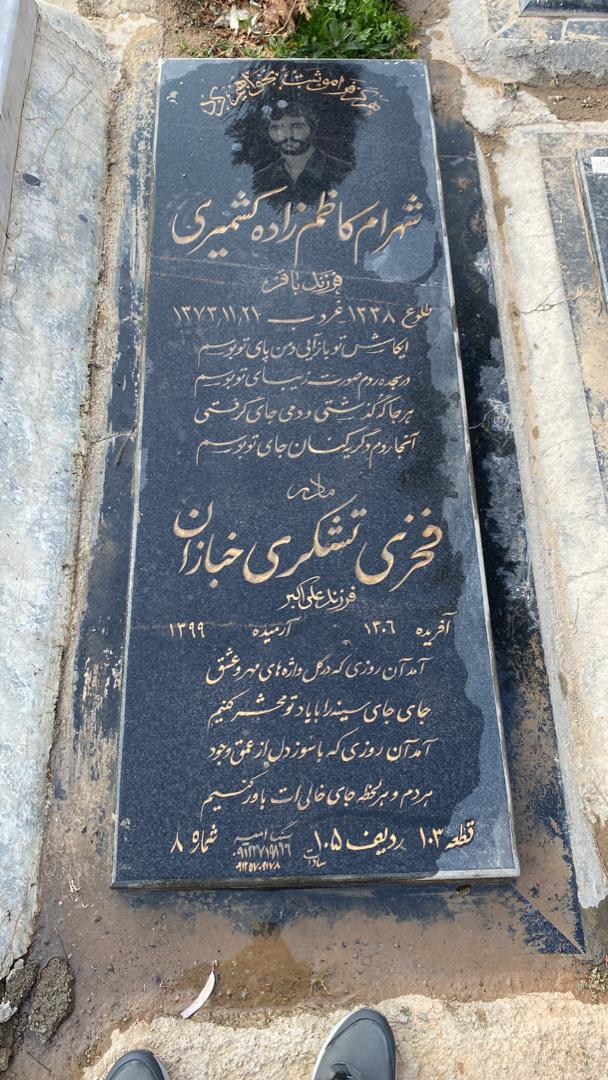 هرگز فراموشت نخواهم کرد
شهرام کاظم زاده کشمیری
فرزند باقر
طلوع ۱۳۳۸ غروب ۱۳۷۳/۱۱/۲۱
ایکاش تو بازآیی و من پای تو بوسم
در سجده روم صورت زیبای تو بوسم
هر جا که گذشتی و دمی جای گرفتی
آنجا روم و گریه کنان جای تو بوسم
مادر
فخری تشکری خبازان
فرزند علی اکبر
آفریده ۱۳۰۶ آرمیده ۱۳۹۹
آمد آن روزی که در گل واژه های مهر و عشق
جای جای سینه را با یاد تو محشر کنیم
آمد آن روزی که با سوز دل از عمق وجود
هر دم و هر لحظه جای خالی ات باور کنیم
قطعه ۱۰۳ ردیف ۱۰۵ شماره ۸
سادات